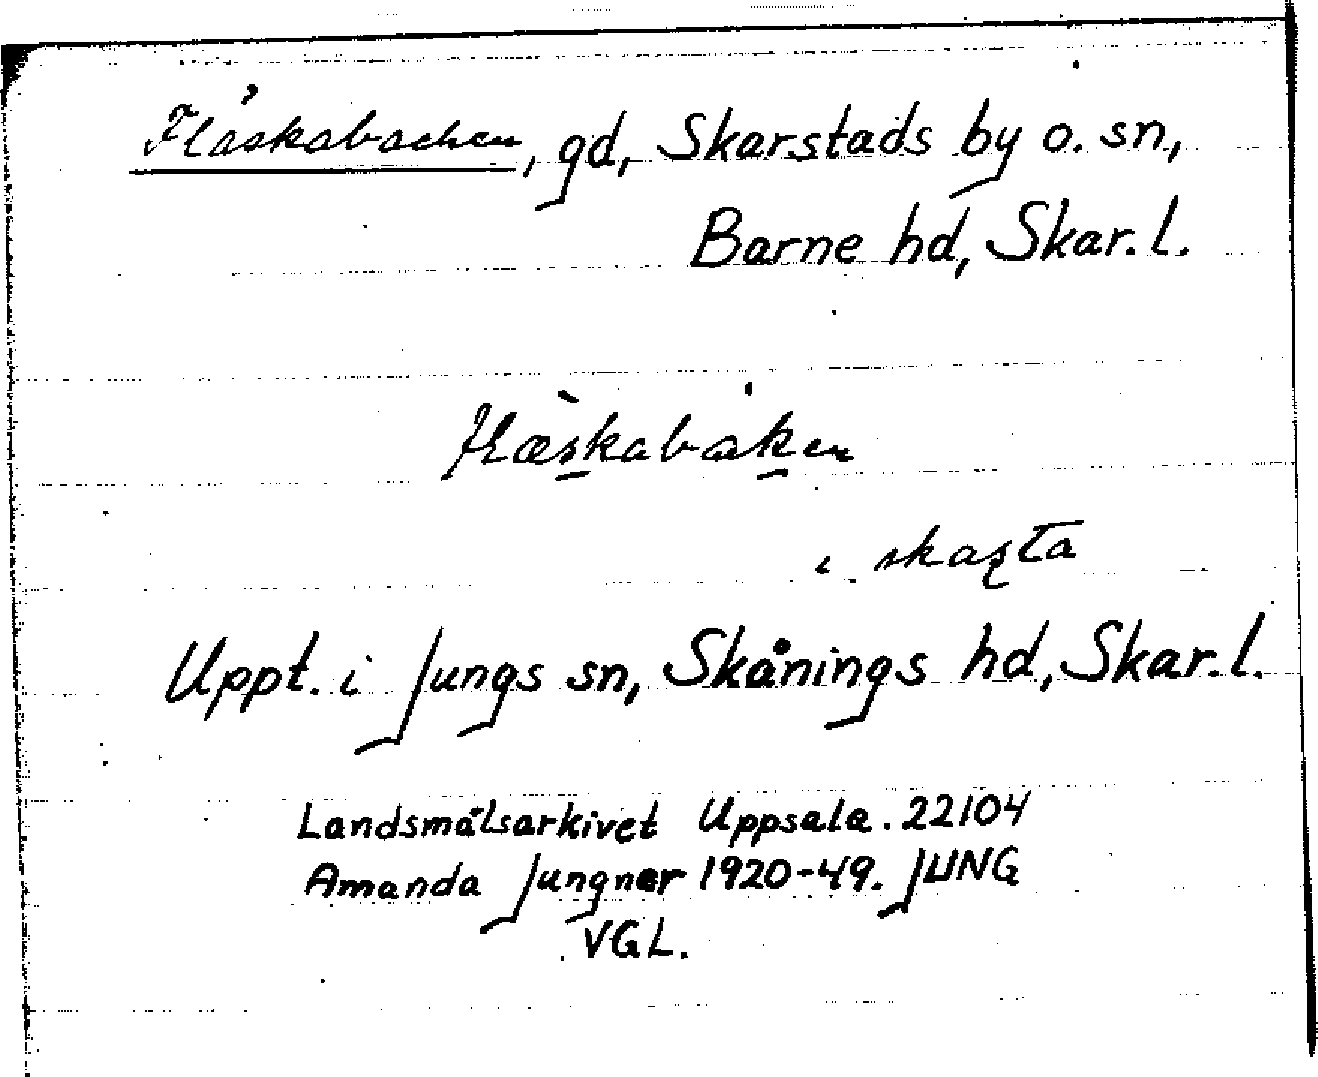 Fläskabacken, gd, Skarstads by o. sn,
Barne hd, Skar. l.
flæskabaken
i skaʂta
Uppt. i Jungs sn, Skånings hd, Skar. l.
Landsmålsarkivet Uppsala. 22104
Amanda Jungner 1920-49. JUNG
VGL.